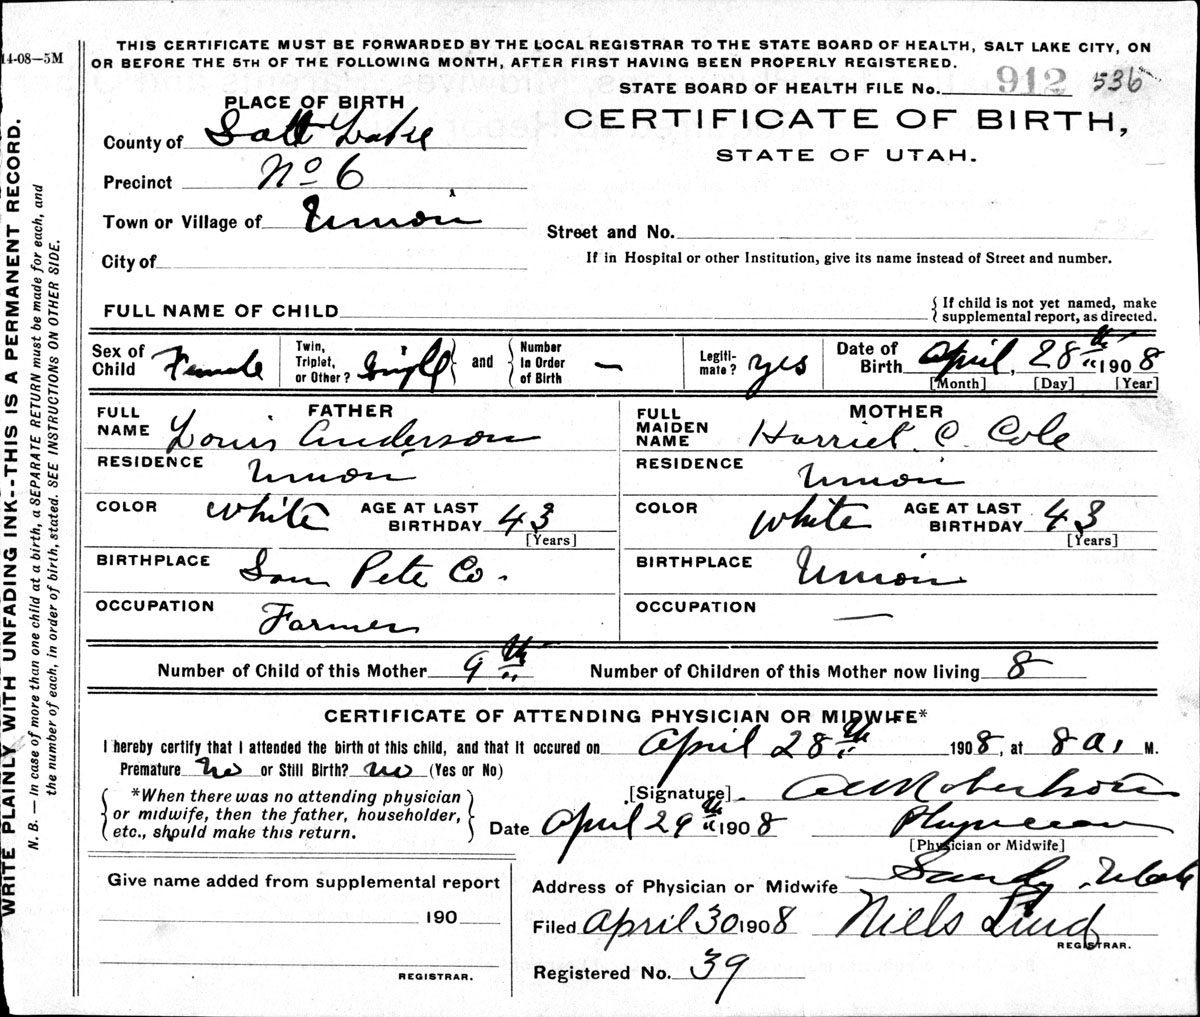 14-08—5M
THIS CERTIFICATE MUST BE FORWARDED BY THE LOCAL REGISTRAR TO THE STATE BOARD OF HEALTH, SALT LAKE CITY, ON
OR BEFORE THE 5TH OF THE FOLLOWING MONTH, AFTER FIRST HAVING BEEN PROPERLY REGISTERED.
STATE BOARD OF HEALTH FILE No. 912 536
PLACE OF BIRTH
CERTIFICATE OF BIRTH,
STATE OF UTAH.
County of Salt Lake
Precinct No 6
Town or Village of Union
Street and No.
City of
If in Hospital or other Institution, give its name instead of Street and number.
FULL NAME OF CHILD
{ If child is not yet named, make
supplemental report, as directed.
Sex of Child Female
Twin, Triplet, or Other? Single } and { Number In Order of Birth —
Legiti- mate? yes
Date of Birth April, 28th 1908
[Month] [Day] [Year]
FATHER
FULL NAME Louis Anderson
RESIDENCE Union
COLOR White AGE AT LAST BIRTHDAY 43
[Years]
BIRTHPLACE San Pete Co.
OCCUPATION Farmer
MOTHER
FULL MAIDEN NAME Harriet C. Cole
RESIDENCE Union
COLOR White AGE AT LAST BIRTHDAY 43
[Years]
BIRTHPLACE Union
OCCUPATION —
Number of Child of this Mother 9th Number of Children of this Mother now living 8
CERTIFICATE OF ATTENDING PHYSICIAN OR MIDWIFE*
I hereby certify that I attended the birth of this child, and that it occured on April 28th 1908, at 8 a. M.
Premature No or Still Birth? No (Yes or No)
{ *When there was no attending physician
or midwife, then the father, householder,
etc., should make this return. }
[Signature]
Date April 29th 1908 Physician
[Physician or Midwife]
Address of Physician or Midwife Sandy, Utah
Filed April 30 1908 Niels Lind
REGISTRAR.
Registered No. 39
Give name added from supplemental report
190
REGISTRAR.
WRITE PLAINLY WITH UNFADING INK--THIS IS A PERMANENT RECORD.
N. B. — In case of more than one child at a birth, a SEPARATE RETURN must be made for each, and
the number of each, in order of birth, stated. SEE INSTRUCTIONS ON OTHER SIDE.